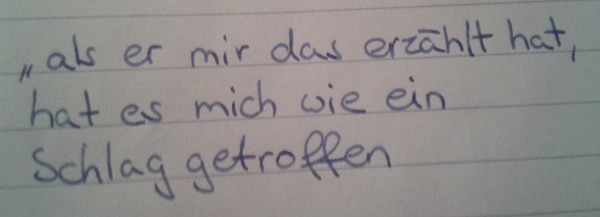 „als er mir das erzählt hat,
hat es mich wie ein
Schlag getroffen